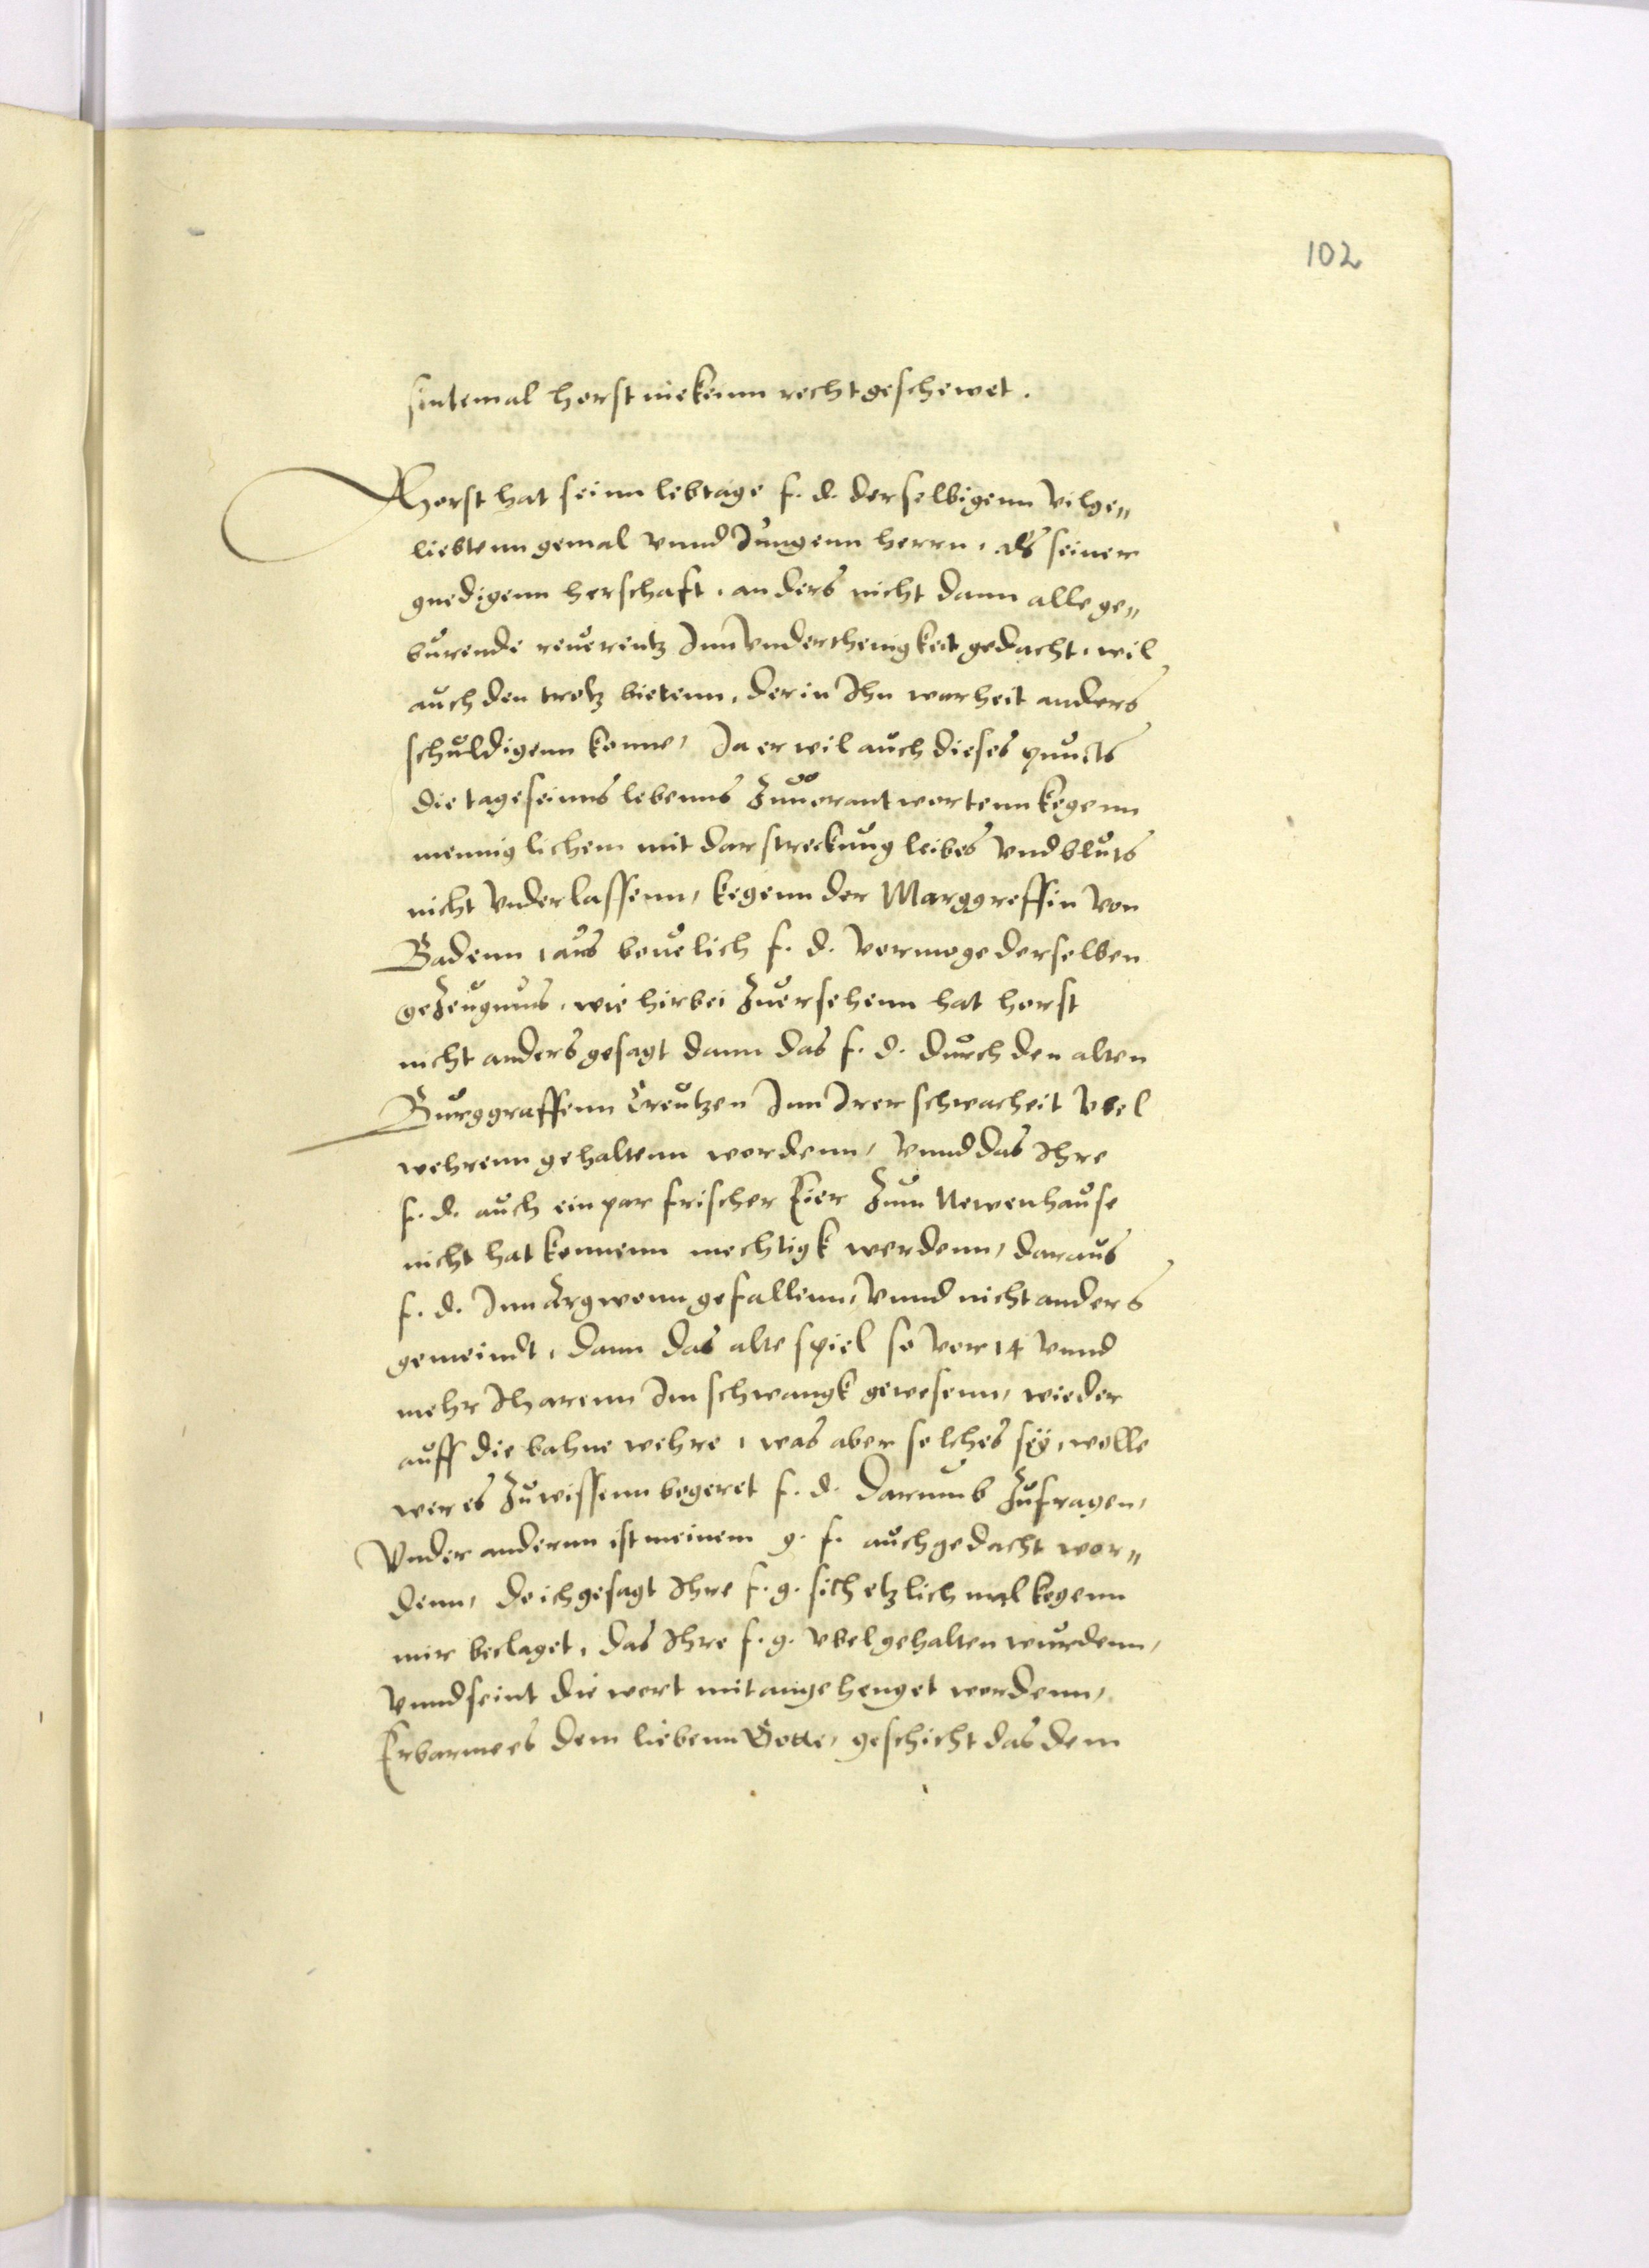 102
sintemal horst nie kein recht geschewet.
Horst hat sein lebtage f. d. derselbigenn vilge„
liebtenn gemal vnnd Jungenn herrn, als seiner
gnedigenn herschaft, anders nicht dann alle ge„
burende reuerentz Inn Vndertheingkeit gedacht, wil
auch den trotz bietenn, der in Ihn warheit anders
schuldigenn konne, Ja er wil auch dieses puncts
die tage seinns lebenns Zuuorantwortenn kegenn
menniglichem mit darstreckung leibes Vnd bluts
nicht Vnderlassenn, kegenn der Marggreffin Von
Badenn, aus beuelich f. d. Vormoge derselben
geZeugnuss, wie hirbei Zuersehenn hat horst
nicht anders gesagt dann das f. d. durch den alten
Burggraffenn Creutzen Inn Irer schwacheit Vbel
wehrenn gehaltenn wordenn, Vnnd das Ihre
f. d. auch ein par frischer Eier Zum Newenhause
nicht hat konnenn mechtigk werdenn, daraus
f. d. Inn Argwonn gefallenn, Vnnd nicht anders
gemeindt, dann das alte spiel so Vor 14 Vnnd
mehr Jharenn Im schwangk gewesenn, wieder
auff die bahne wehre, was aber solches sey, wolle
wer es Zuwissenn begeret f. d. darumb Zufragen,
Vnder anderm ist meinem g. f. auch gedacht wor„
denn, do ich gesagt Ihre f. g. sich etzlich mal kegenn
mir beclaget, das Ihre f. g. Vbel gehalten wurdenn,
Vnnd seint die wort mit angehenget wordenn,
Erbarme es dem liebenn Gotte, geschicht das dem